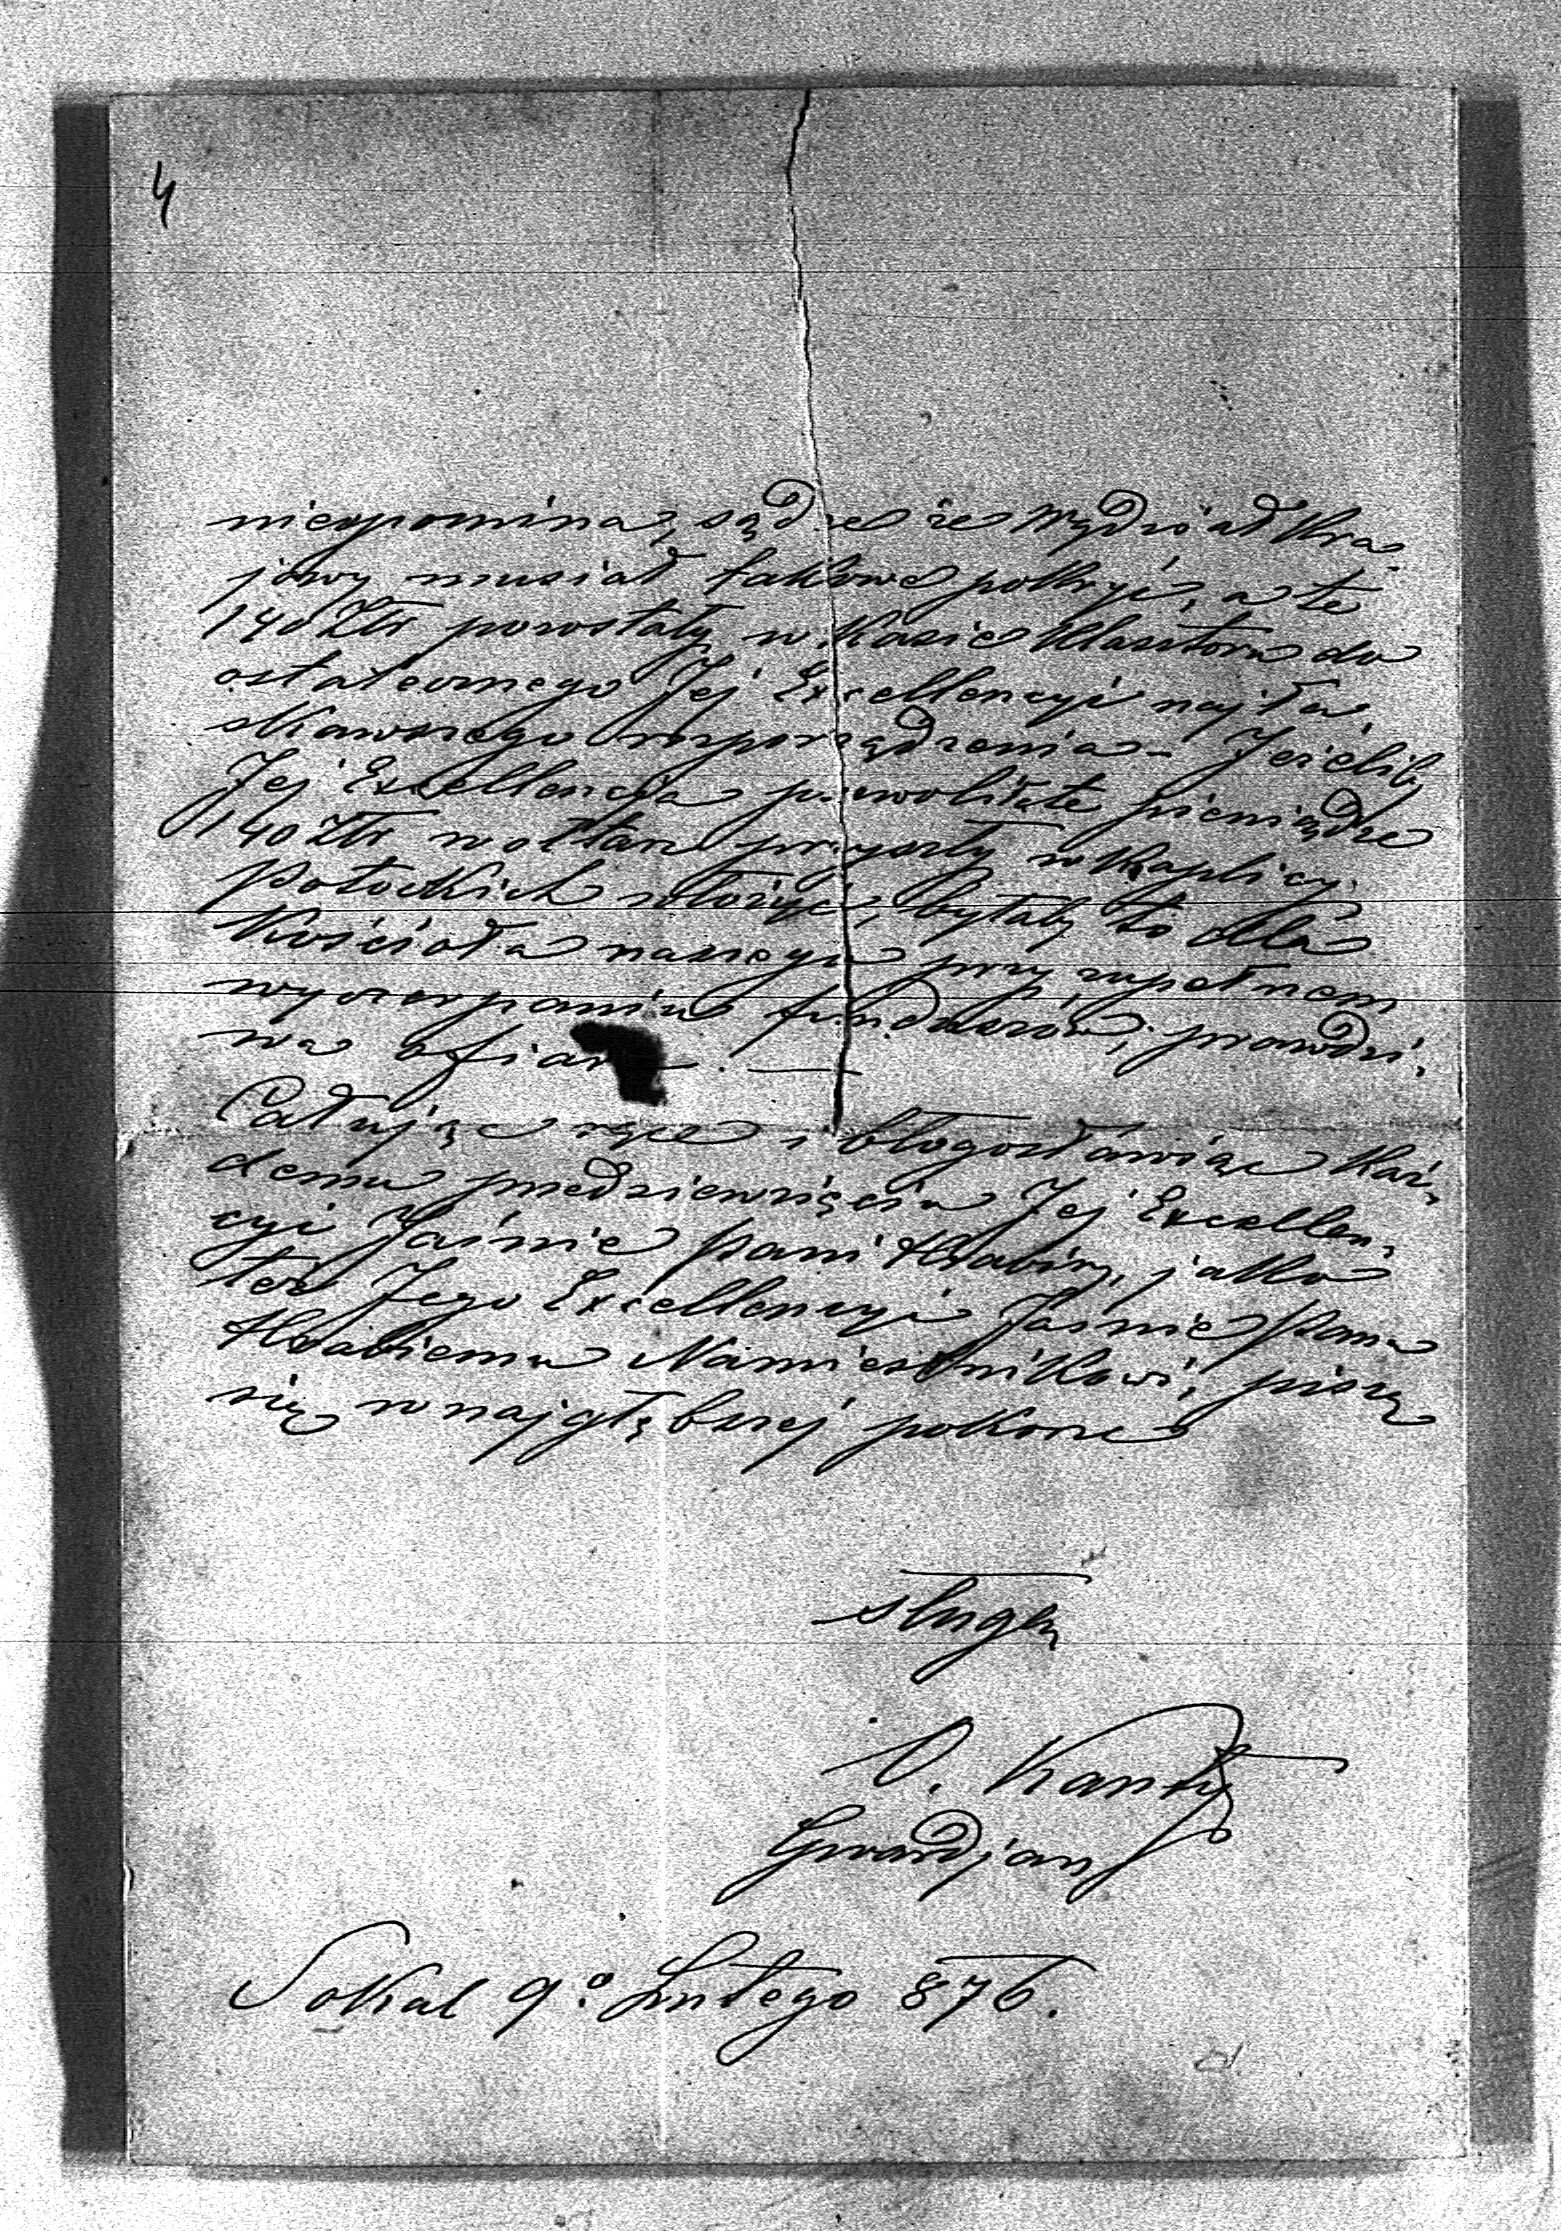 4
nieupomina, sądzę że Wydział Kra-
jowy musiał takowe pokryć, a te
140 Złr pozostały w Kasie Klasztoru do
ostatecznego Jej Excellencyi najła-
skawszego rozporządzenia – Jeżeliby
Jej Excellencya pozwoliła te pieniądze
140 Złr w ołtarz przyszły w Kaplicy
Potockich włożyć, byłaby to dla
Kościoła naszego przy zupełnem
wyczerpaniu funduszów, prawdzi-
wa ofiara. —
Całując ręce i błogosławiąc Każ-
demu przedsięwzięciu Jej Excellen-
cyi Jaśnie Pani Hrabiny, jako
też Jego Excellencyi Jaśnie Panu
Hrabiemu Namiestnikowi, piszę
się w najgłębszej pokorze
sługą
O. Kanty
Gwardjan
Sokal 9.° Lutego 876.